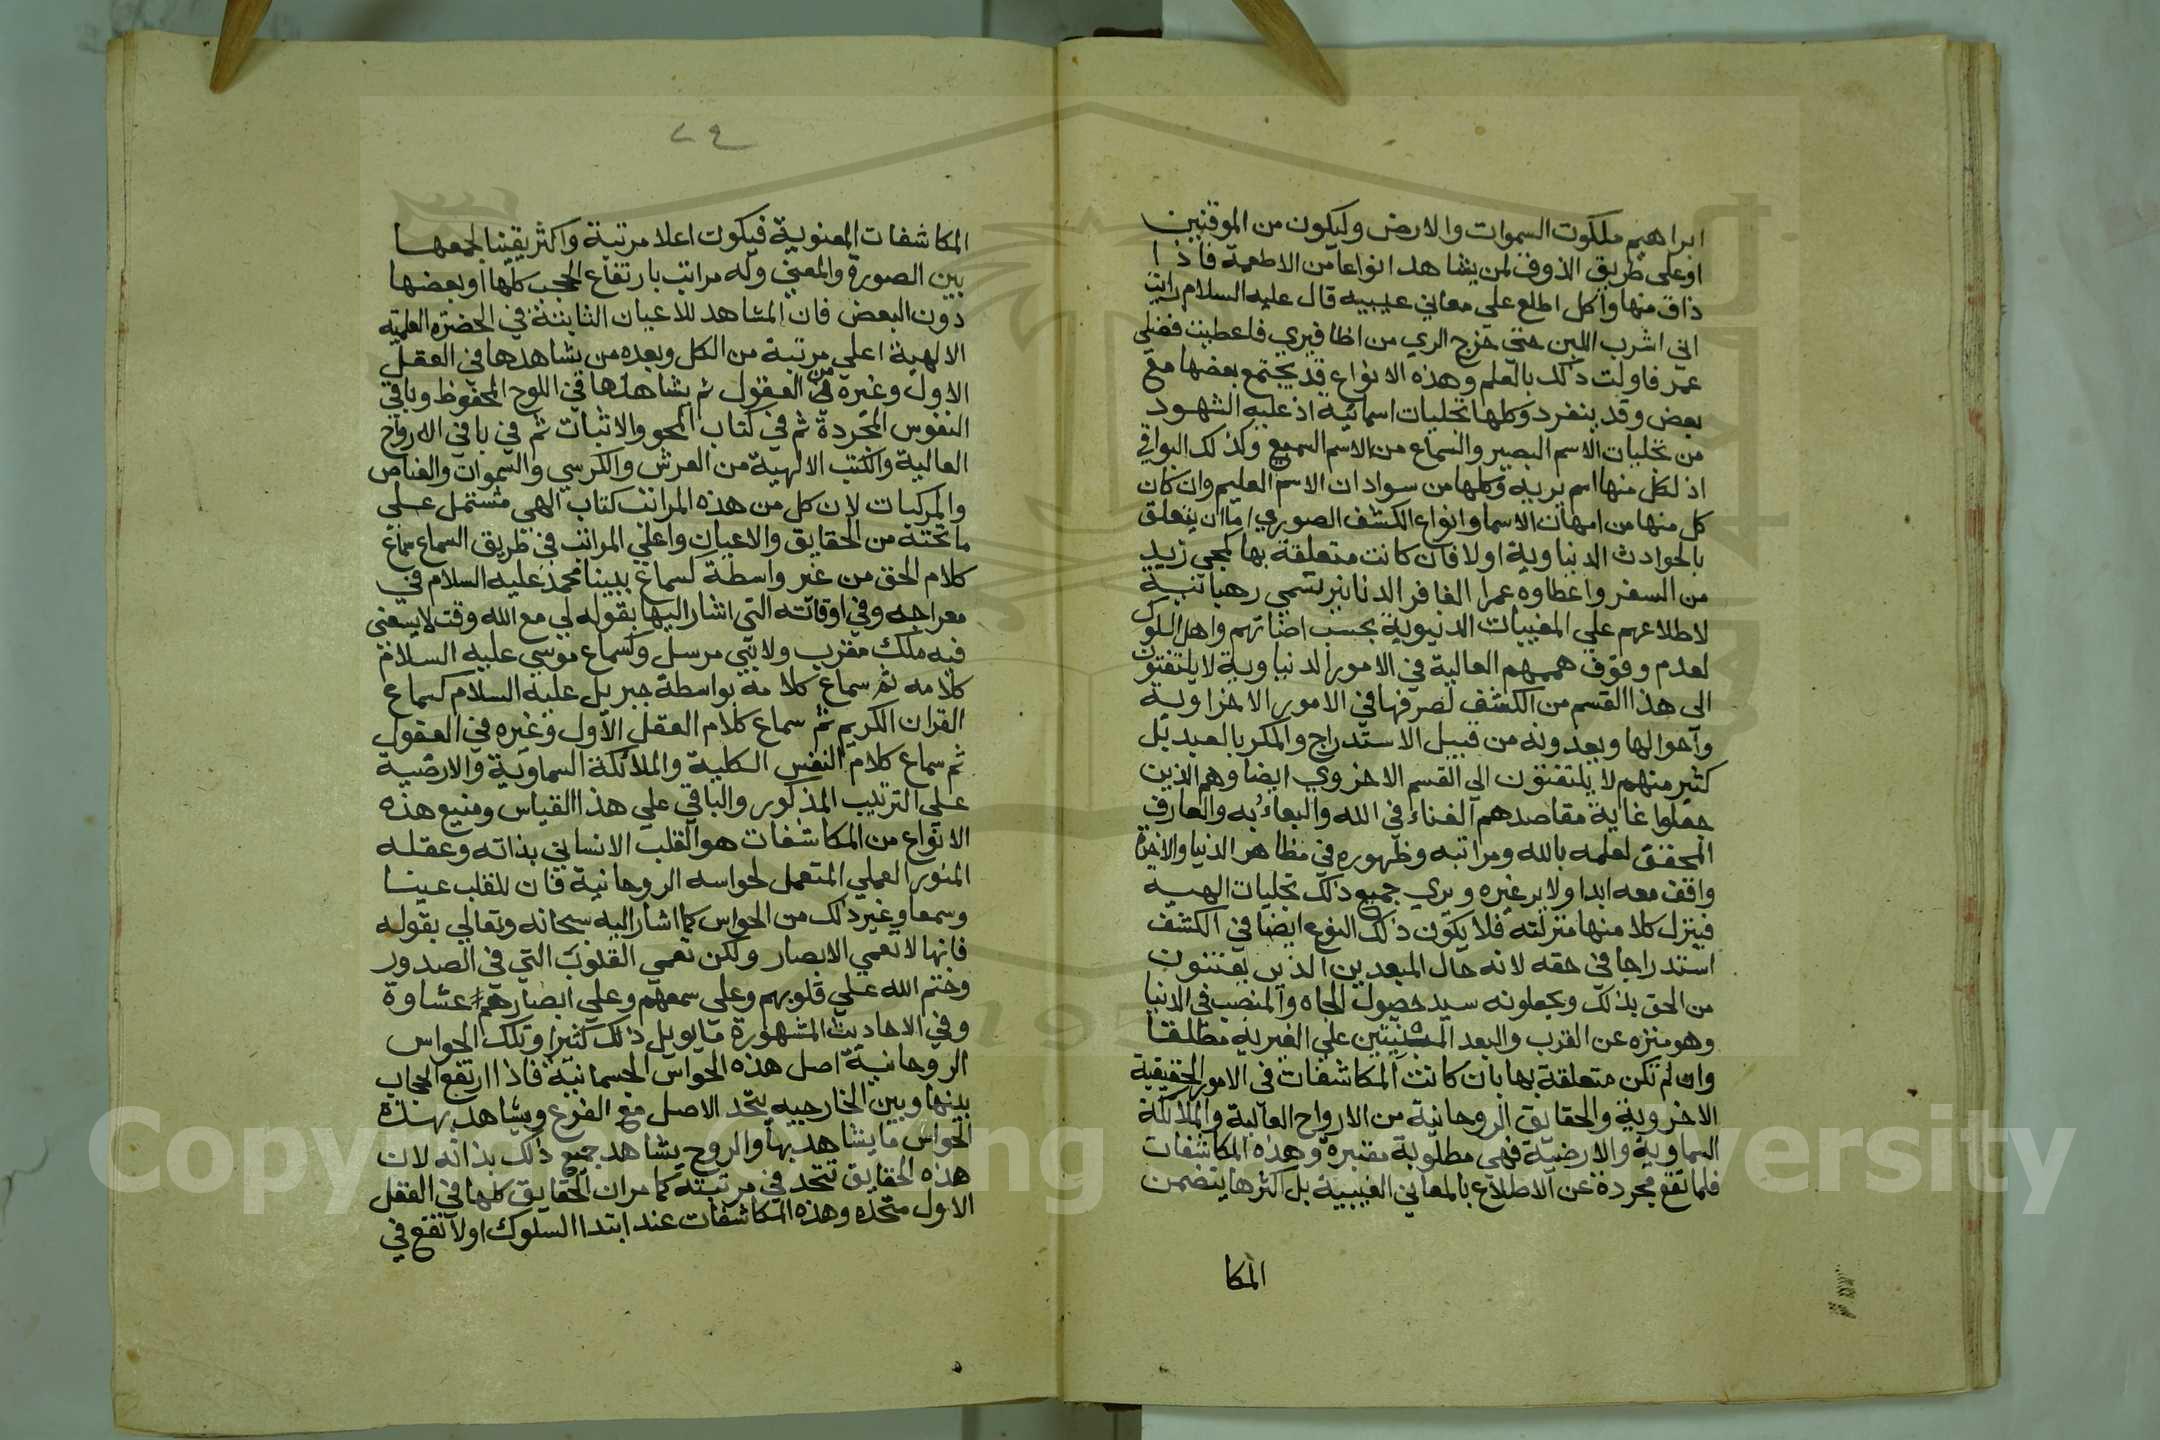 ابراهيم ملكوت السموات والارض وليكون من الموقنين
او على طريق الذوق لمن يشاهد انواعا من الاطعمة فاذا
ذاق منها واكل اطلع علي معاني غيبيه قال عليه السلام رايت
اني اشرب اللبن حتى خرج الري من اظافيري فاعطيت فضلي
عمر فاولت ذلك بالعلم وهذه الانواع قد يجتمع بعضها مع
بعض وقد ينفرد وكلها تجليات اسمائيه اذ عليه الشهود
من تجليات الاسم البصير والسماع من الاسم السميع وكذلك البواقي
اذ لكل منها اسم يربيه وكلها من سوادان الاسم العليم وان كان
كل منها من امهات الاسما وانواع الكشف الصوري اما ان يتعلق
بالحوادث الدنياوية اولا فان كانت متعلقة بها كمجي زيد
من السفر واعطاوه عمرا الفا فر الدنانير تسمي رهبانية
لاطلاعهم علي المغيبات الدنيوية بحسب اضاتهم واهل السلوك
لعدم وقوف هممهم العالية في الامور الدنياوية لا يلتفتون
الى هذا القسم من الكشف لصرفها في الامور الاخراوية
واحوالها ويعدونه من قبيل الاستدراج والمكر بالعبد بل
كثير منهم لا يلتفتون الى القسم الاخروي ايضا وهم الذين
جعلوا غاية مقاصدهم الفناء في الله والبقاء به والعارف
المحقق لعلمه بالله ومراتبه وظهوره في مظاهر الدنيا والاخرة
واقف معه ابدا ولا ير غيره ويري جميع ذلك تجليات الهيه
فينزل كلا منها منزلته فلا يكون ذلك النوع ايضا في الكشف
استدراجا في حقه لانه حال المبعدين الذين يقنتون
من الحق بذلك ويجعلونه سبد حصول الجاه والمنصب في الدنيا
وهو منزه عن القرب والبعد المشنيتين علي الغيرية مطلقا
وان لم تكن متعلقة بها بان كانت المكاشفات في الامور الحقيقية
الاخروية والحقايق الروحانية من الارواح العالية والملائكة
السماوية والارضية فهي مطلوبة معتبرة وهذه المكاشفات
فلما تقع مجردة عن الاطلاع بالمعاني الغيبية بل اكثرها يتضمن
المكا
٢٩
المكاشفات المعنوية فيكون اعلا مرتبة واكثر يقينا لجمعها
بين الصورة والمعني وله مراتب بارتفاع الحجب كلها او بعضها
دون البعض فان المشاهد للاعيان الثابتة في الحضرة العلمية
الالهية اعلي مرتبة من الكل وبعده من يشاهدها في العقل
الاول وغيره من العقول ثم يشاهدها في اللوح المحفوظ وباقي
النفوس المجردة ثم في كتاب المحو والاثبات ثم في باقي الارواح
العالية والكتب الالهية من العرش والكرسي والسموات والعناص
والمركبات لان كل من هذه المراتب كتاب الهي مشتمل علي
ما تحته من الحقايق والاعيان واعلي المراتب في طريق السماع سماع
كلام الحق من غير واسطة كسماع نبينا محمد عليه السلام في
معراجه وفي اوقاته التي اشار اليها بقوله لي مع الله وقت لا يسعني
فيه ملك مقرب ولا نبي مرسل وكسماع موسي عليه السلام
كلامه ثم سماع كلامه بواسطة جبريل عليه السلام كسماع
القران الكريم ثم سماع كلام العقل الاول وغيره في العقول
ثم سماع كلام النفس الكلية والملائكة السماوية والارضية
علي الترتيب المذكور والباقي علي هذا القياس ومنبع هذه
الانواع من المكاشفات هو القلب الانساني بذاته وعقله
المنور العملي المتعمل لحواسه الروحانية فان للقلب عينا
وسمعا وغير ذلك من الحواس كما اشار اليه سبحانه وتعالي بقوله
فانها لا تعمي الابصار ولكن تعمي القلوب التي في الصدور
وختم الله علي قلوبهم وعلي سمعهم وعلي ابصارهم عشاوة
وفي الاحاديث المشهورة ما يويل ذلك كثيرا وتلك الحواس
الروحانية اصل هذه الحواس الجسمانية فاذا ارتفع الحجاب
بينها وبين الخارجيه يتحد الاصل مع الفرع ويشاهد بهذه
الحواس ما يشاهد بها والروح يشاهد جميع ذلك بذاته لان
هذه الحقايق تتحد في مرتبته كما مر ان الحقايق كلها في العقل
الاول متحده وهذه المكاشفات عند ابتدا السلوك اولا تقع في